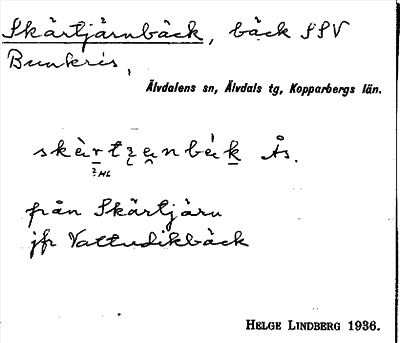 Skärtjärnbäck, bäck SSV
Bunkris,
Älvdalens sn, Älvdals tg, Kopparbergs län.
Ås.
från Skärtjärn
jfr Vattudikbäck
HELGE LINDBERG 1936.